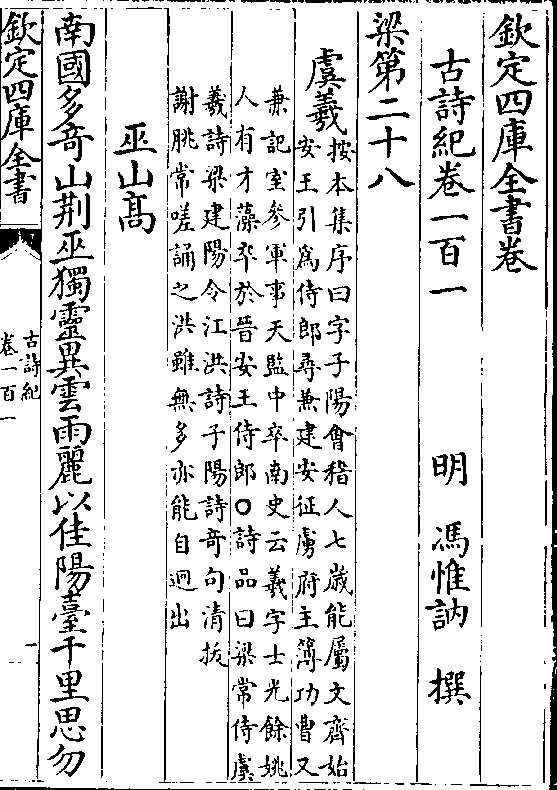 欽定四庫全書卷
古詩紀卷一百一
明 馮惟訥 撰
梁第二十八
虞羲
按本集序曰字子陽會稽人七歲能屬文齊始
安王引爲侍郎尋兼建安征虜府主簿功曹又
兼記室參軍事天監中卒南史云羲字士光餘姚
人有才藻卒於晉安王侍郎○詩品曰梁常侍虞
羲詩梁建陽令江洪詩子陽詩奇句清拔
謝朓常嗟誦之洪雖無多亦能自迥出
巫山髙
南國多奇山荆巫獨靈異雲雨麗以佳陽臺千里思勿
欽定四庫全書
古詩紀
卷一百一
一